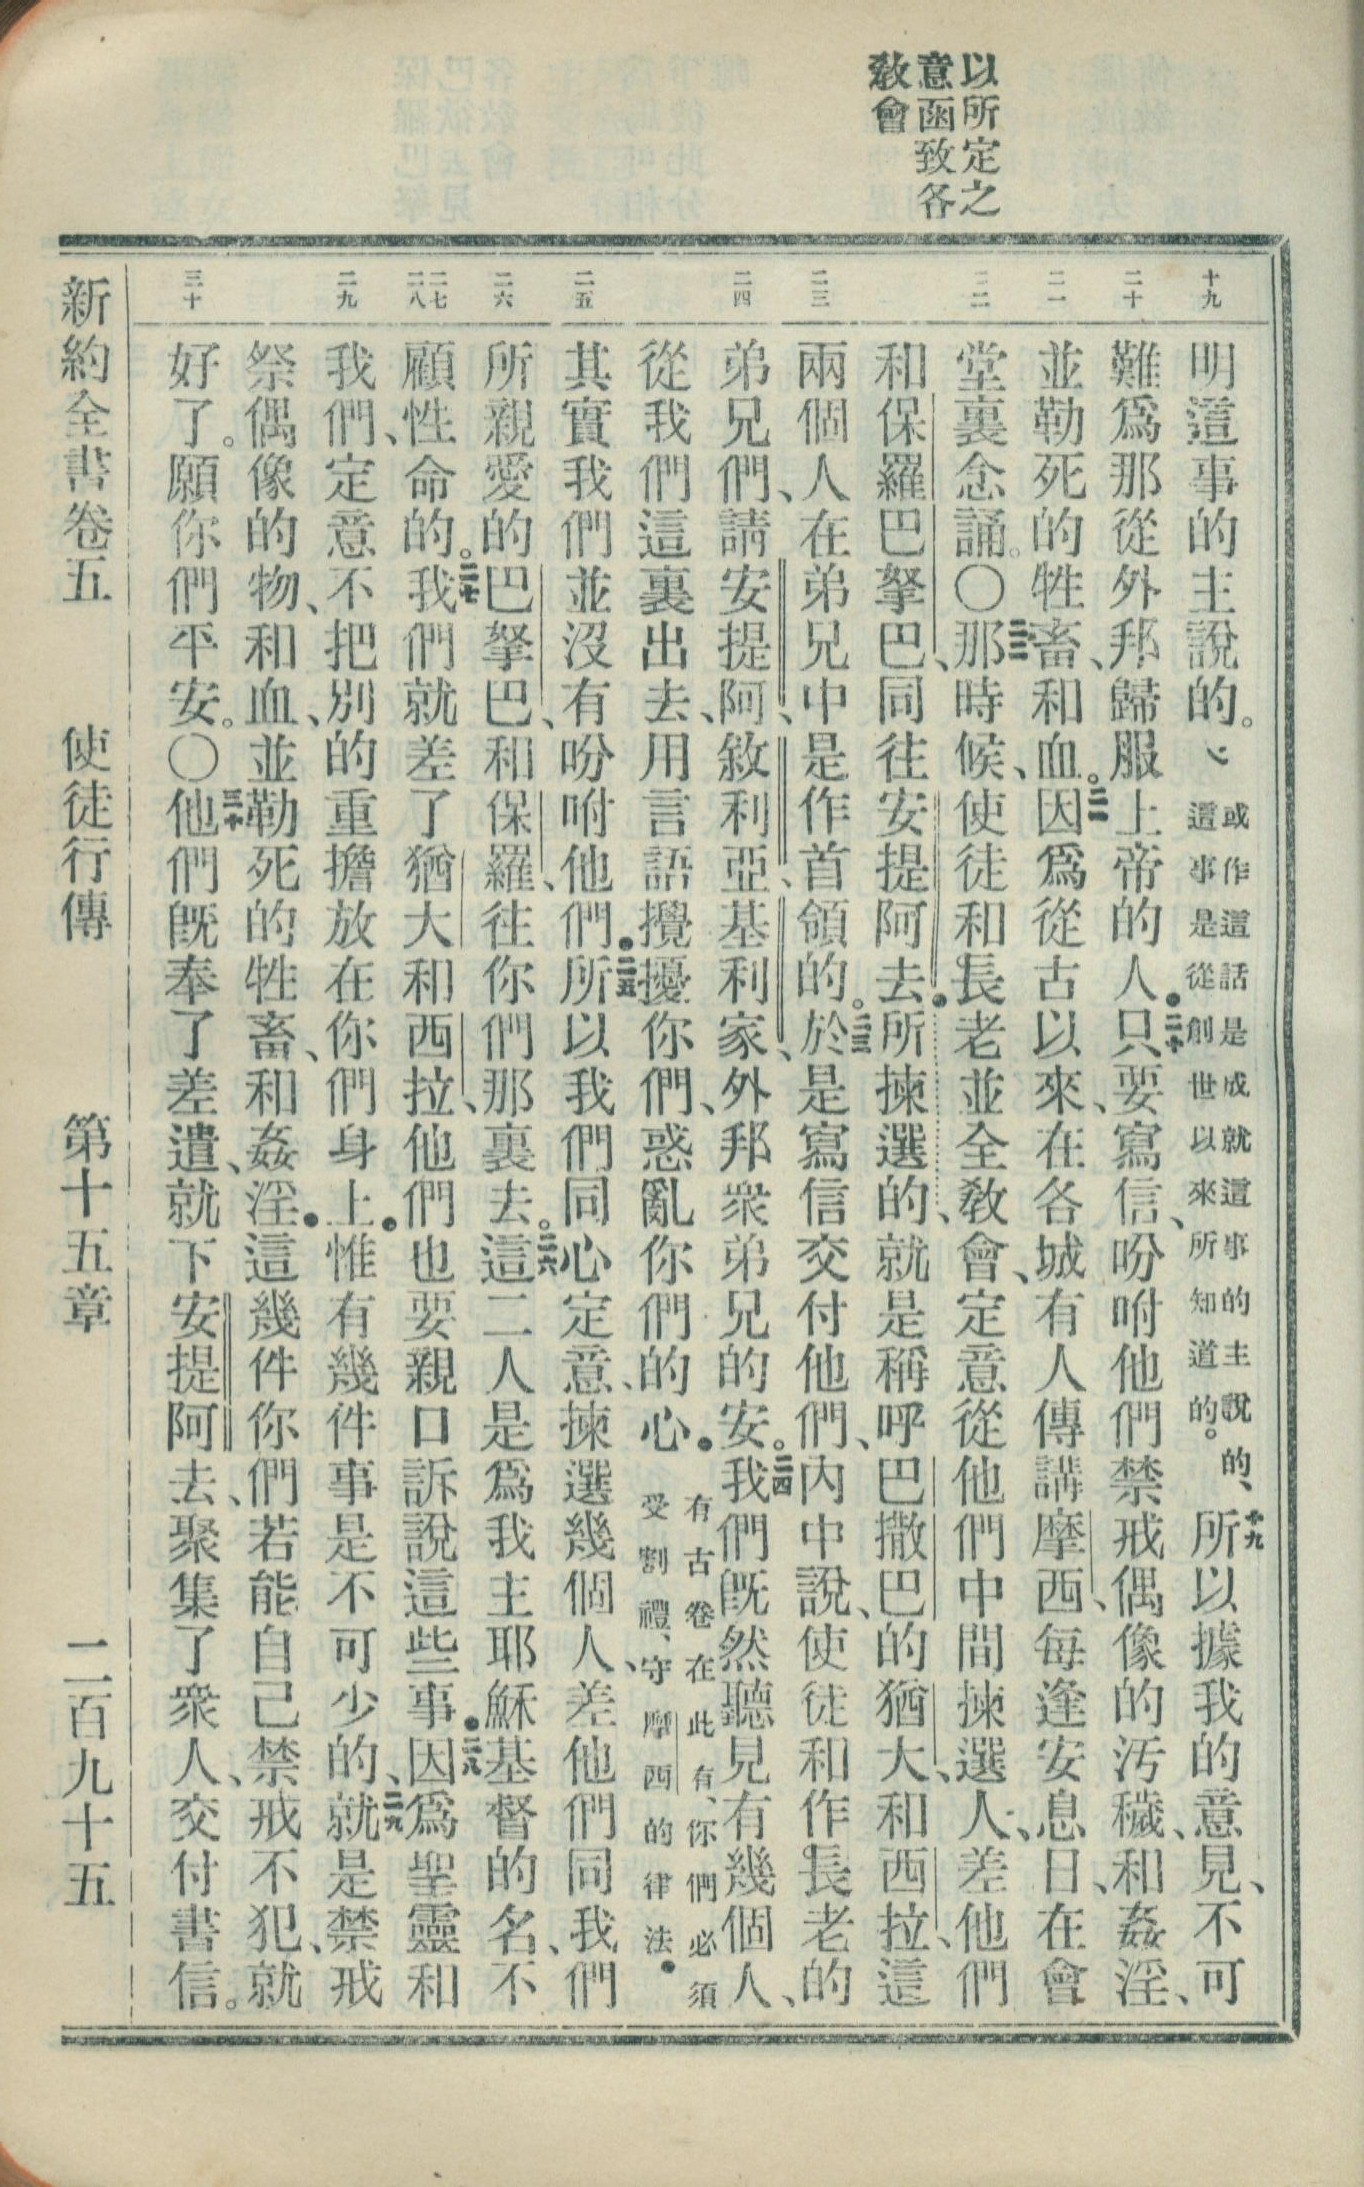 以所定之
意函致各
敎會
十九
二十
二一
二二
二三
二四
二五
二六
二七
二八
二九
三十
明這事的主說的。或作這話是成就這事的主說的、這事是從創世以來所知道的。十九所以據我的意見、不可
難爲那從外邦歸服上帝的人．二十只要寫信、吩咐他們禁戒偶像的汚穢、和姦淫、
並勒死的牲畜、和血。二一因爲從古以來、在各城有人傳講摩西、每逢安息日、在會
堂裏念誦。〇二二那時候、使徒和長老並全敎會、定意從他們中間揀選人、差他們
和保羅巴拏巴、同往安提阿去．所揀選的、就是稱呼巴撒巴的猶大、和西拉、這
兩個人在弟兄中是作首領的。二三於是寫信交付他們、內中說、使徒和作長老的
弟兄們、請安提阿、敘利亞、基利家、外邦衆弟兄的安。二四我們旣然聽見有幾個人、
從我們這裏出去、用言語攪擾你們、惑亂你們的心．有古卷在此有、你們必須受割禮、守摩西的律法．
其實我們並沒有吩咐他們．二五所以我們同心定意、揀選幾個人、差他們同我們
所親愛的巴拏巴、和保羅、往你們那裏去。二六這二人是爲我主耶穌基督的名、不
顧性命的。二七我們就差了猶大和西拉、他們也要親口訴說這些事．二八因爲聖靈和
我們、定意不把別的重擔放在你們身上．惟有幾件事是不可少的、二九就是禁戒
祭偶像的物、和血、並勒死的牲畜、和姦淫．這幾件你們若能自己禁戒不犯、就
好了。願你們平安。〇三十他們旣奉了差遣、就下安提阿去、聚集了衆人、交付書信。
新約全書卷五　使徒行傳　第十五章　二百九十五